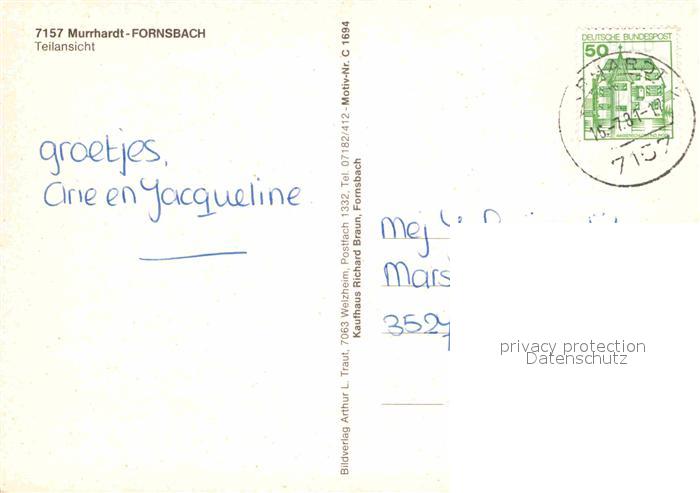 7157 Murrhardt-FORNSBACH
Teilansicht
groetjes,
Arie en Jacqueline
Bildverlag Arthur L. Traut, 7063 Welzheim, Postfach 1332, Tel. 07182/412 - Motiv-Nr. C 1694
Kaufhaus Richard Braun, Fornsbach
DEUTSCHE BUNDESPOST
50
7157
Mej
3527
privacy protection
Datenschutz